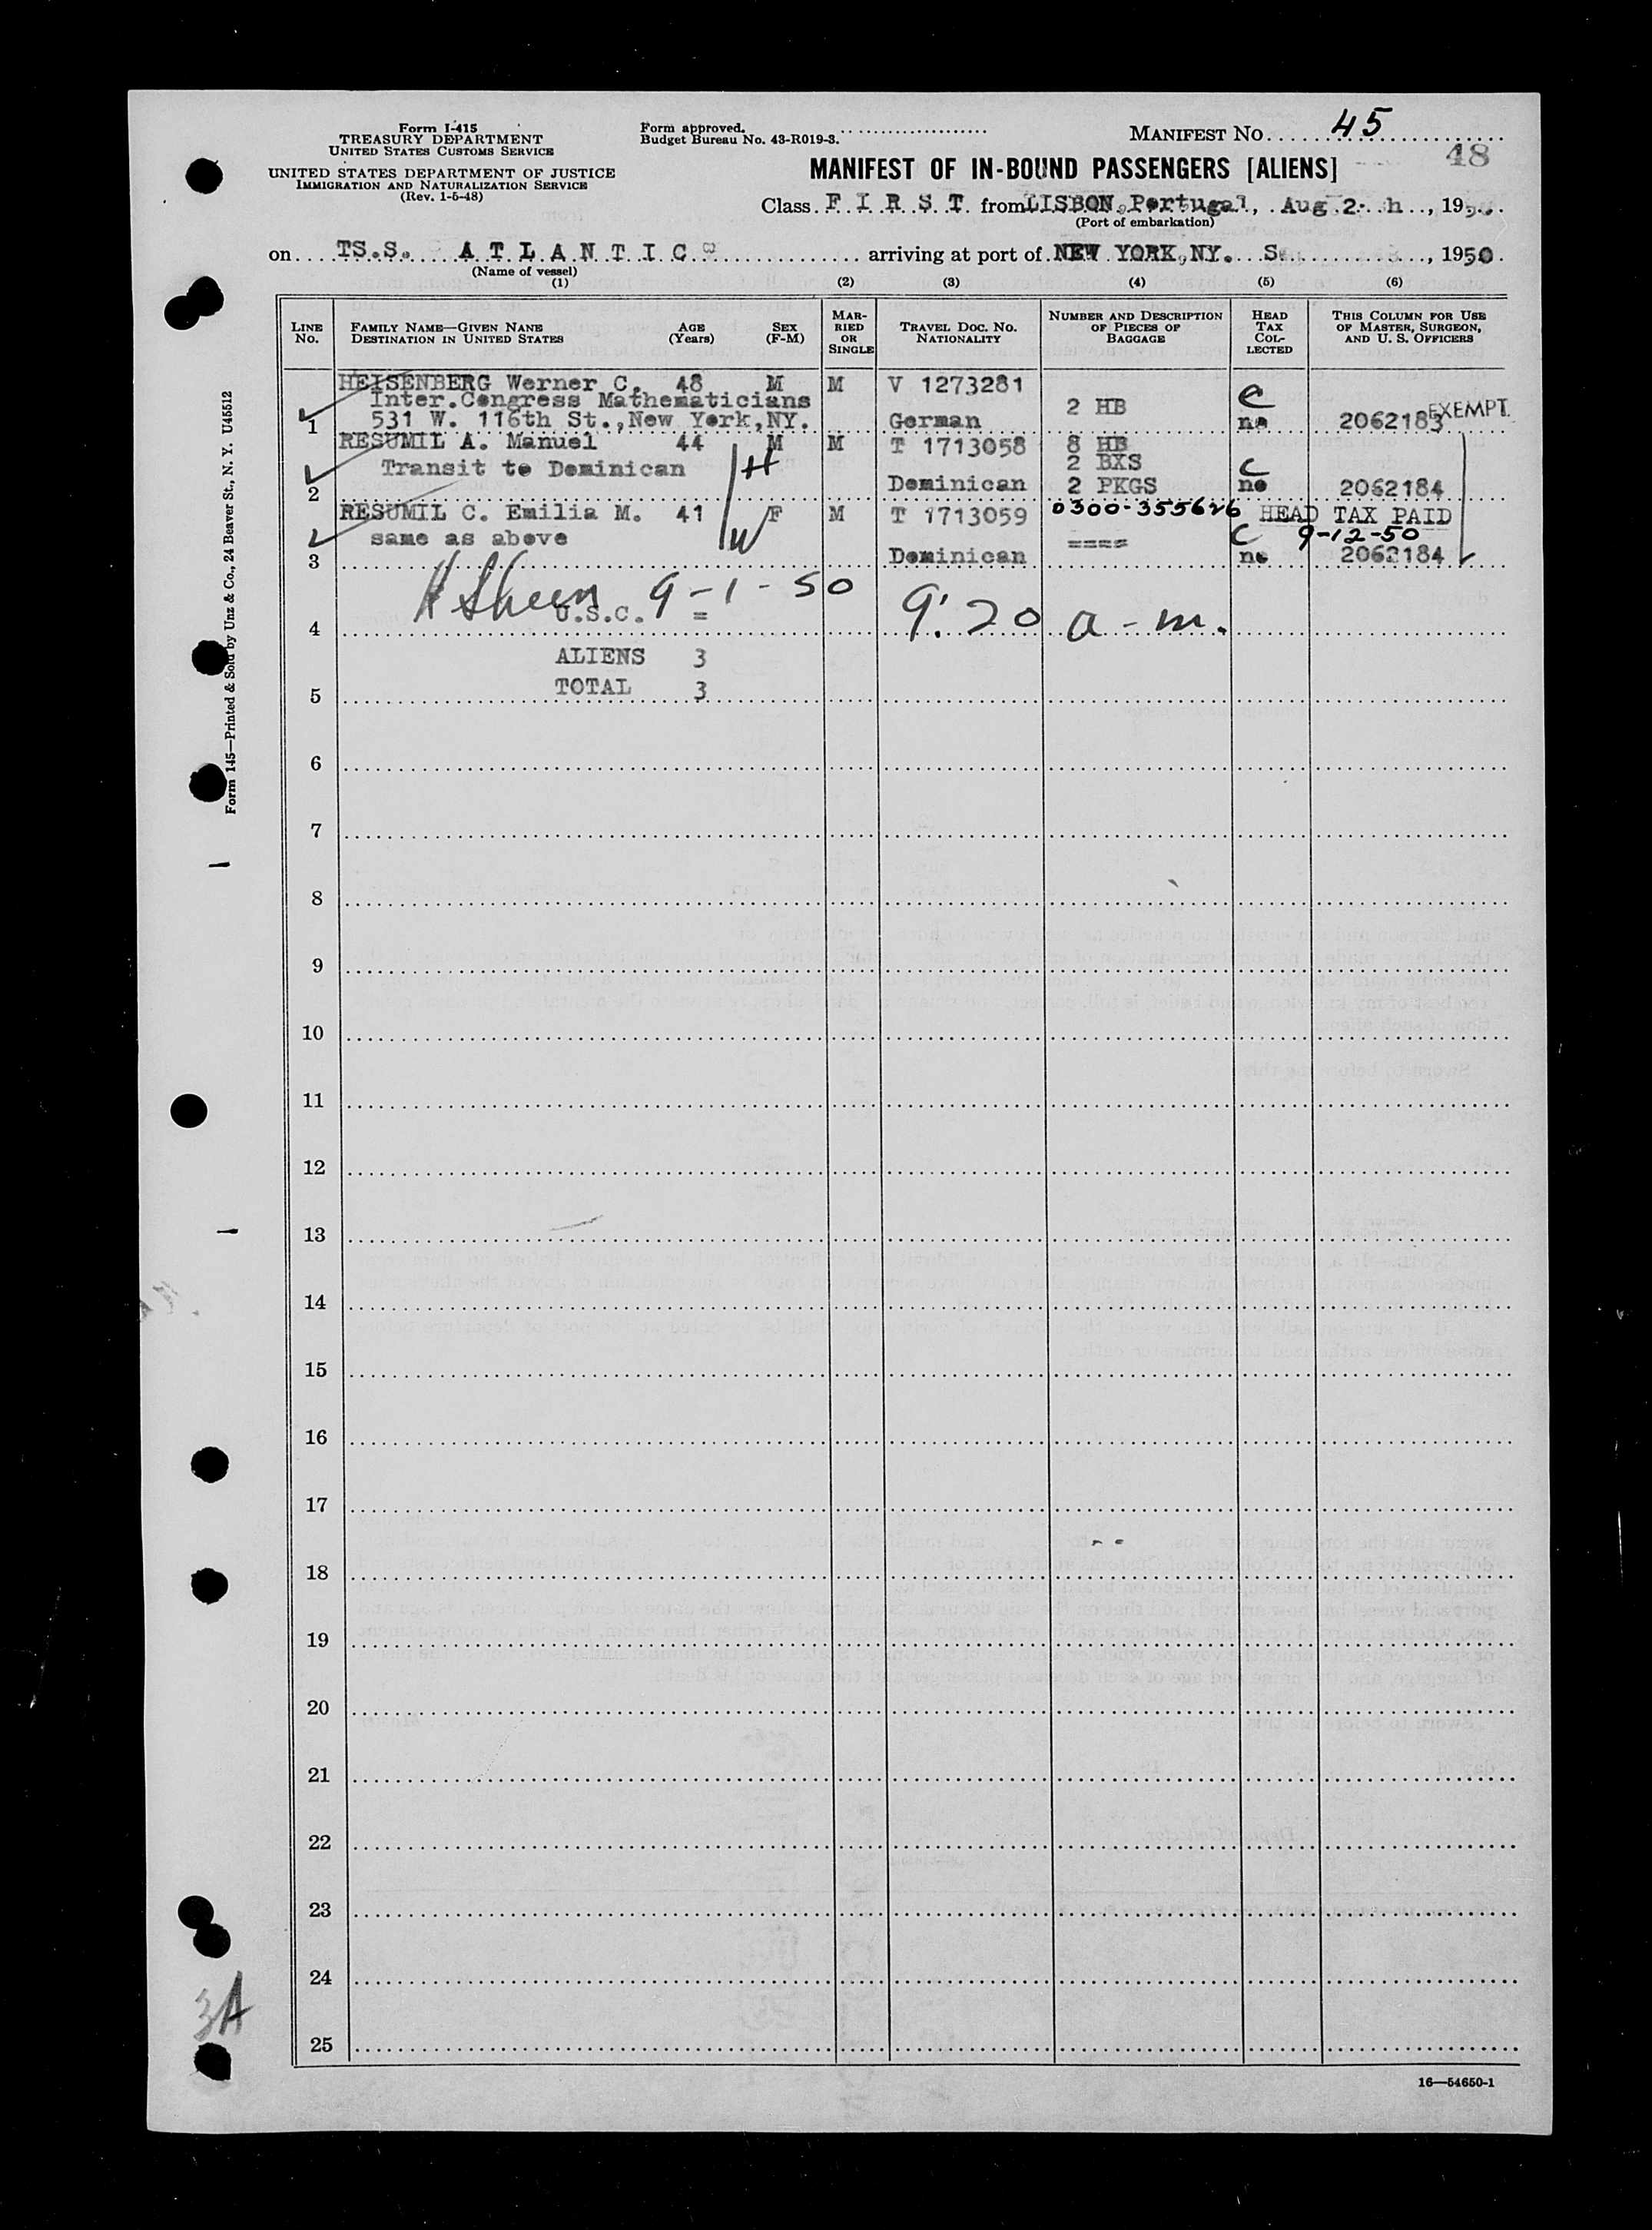 Form I-415
TREASURY DEPARTMENT
UNITED STATES CUSTOMS SERVICE
UNITED STATES DEPARTMENT OF JUSTICE
IMMIGRATION AND NATURALIZATION SERVICE
(Rev. 1-5-48)
Form approved.
Budget Bureau No. 43-R019-3.
MANIFEST NO. 45
48
MANIFEST OF IN-BOUND PASSENGERS [ALIENS]
Class F I R S T from LISBON, Portugal, Aug 2 h, 19
(Port of embarkation)
on TS.S. A T L A N T I C arriving at port of NEW YORK, NY. S , 1950
(Name of vessel)
(1) (2) (3) (4) (5) (6)
LINE No. FAMILY NAME—GIVEN NANE DESTINATION IN UNITED STATES AGE (Years) SEX (F-M) MARRIED OR SINGLE TRAVEL DOC. NO. NATIONALITY NUMBER AND DESCRIPTION OF PIECES OF BAGGAGE HEAD TAX COLLECTED THIS COLUMN FOR USE OF MASTER, SURGEON, AND U. S. OFFICERS
HEISENBERG Werner C. 48 M M V 1273281 C
Inter.Congress Mathematicians 2 HB EXEMPT
1 531 W. 116th St.,New York,NY. German no 2062183
RESUMIL A. Manuel 44 M M T 1713058 8 HB
Transit to Dominican H 2 BXS C
2 Dominican 2 PKGS no 2062184
RESUMIL C. Emilia M. 41 F M T 1713059 0300-355626 HEAD TAX PAID
same as above W ==== C 9-12-50
3 Dominican no 2062184
9-1-50 9:20 a-m.
4 U.S.C. =
ALIENS 3
5 TOTAL 3
6
7
8
9
10
11
12
13
14
15
16
17
18
19
20
21
22
23
24
25
3A
16—54650-1
Form 145—Printed & Sold by Unz & Co., 24 Beaver St., N. Y. U45512